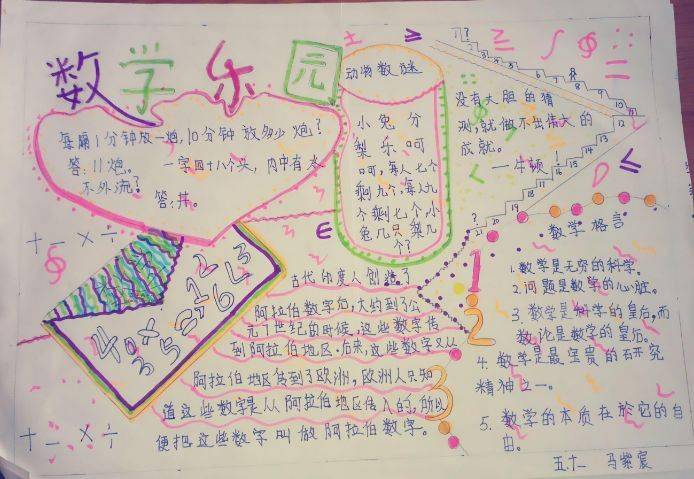 数学乐园
每隔1分钟放一炮,10分钟放多少炮?
答:11炮。 一字四十八个头,内中有水
不外流? 答:井。
动物数谜
小兔分
梨乐呵
呵,每人七个
剩九个,每人九
个剩七个,小
兔几只梨几
个?
没有大胆的猜
测,就做不出伟大的
成就。
——牛顿
+ - × ÷
+ - × ÷
古代印度人创造了
阿拉伯数字后,大约到了公
元7世纪的时候,这些数字传
到阿拉伯地区,后来,这些数字又从
阿拉伯地区传到了欧洲,欧洲人只知
道这些数字是从阿拉伯地区传入的,所以
便把这些数字叫做阿拉伯数字。
1
2
3
数学格言
1.数学是无穷的科学。
2.问题是数学的心脏。
3.数学是科学的皇后,而
数论是数学的皇后。
4.数学是最宝贵的研究
精神之一。
5.数学的本质在於它的自
由。
五十一 马紫宸